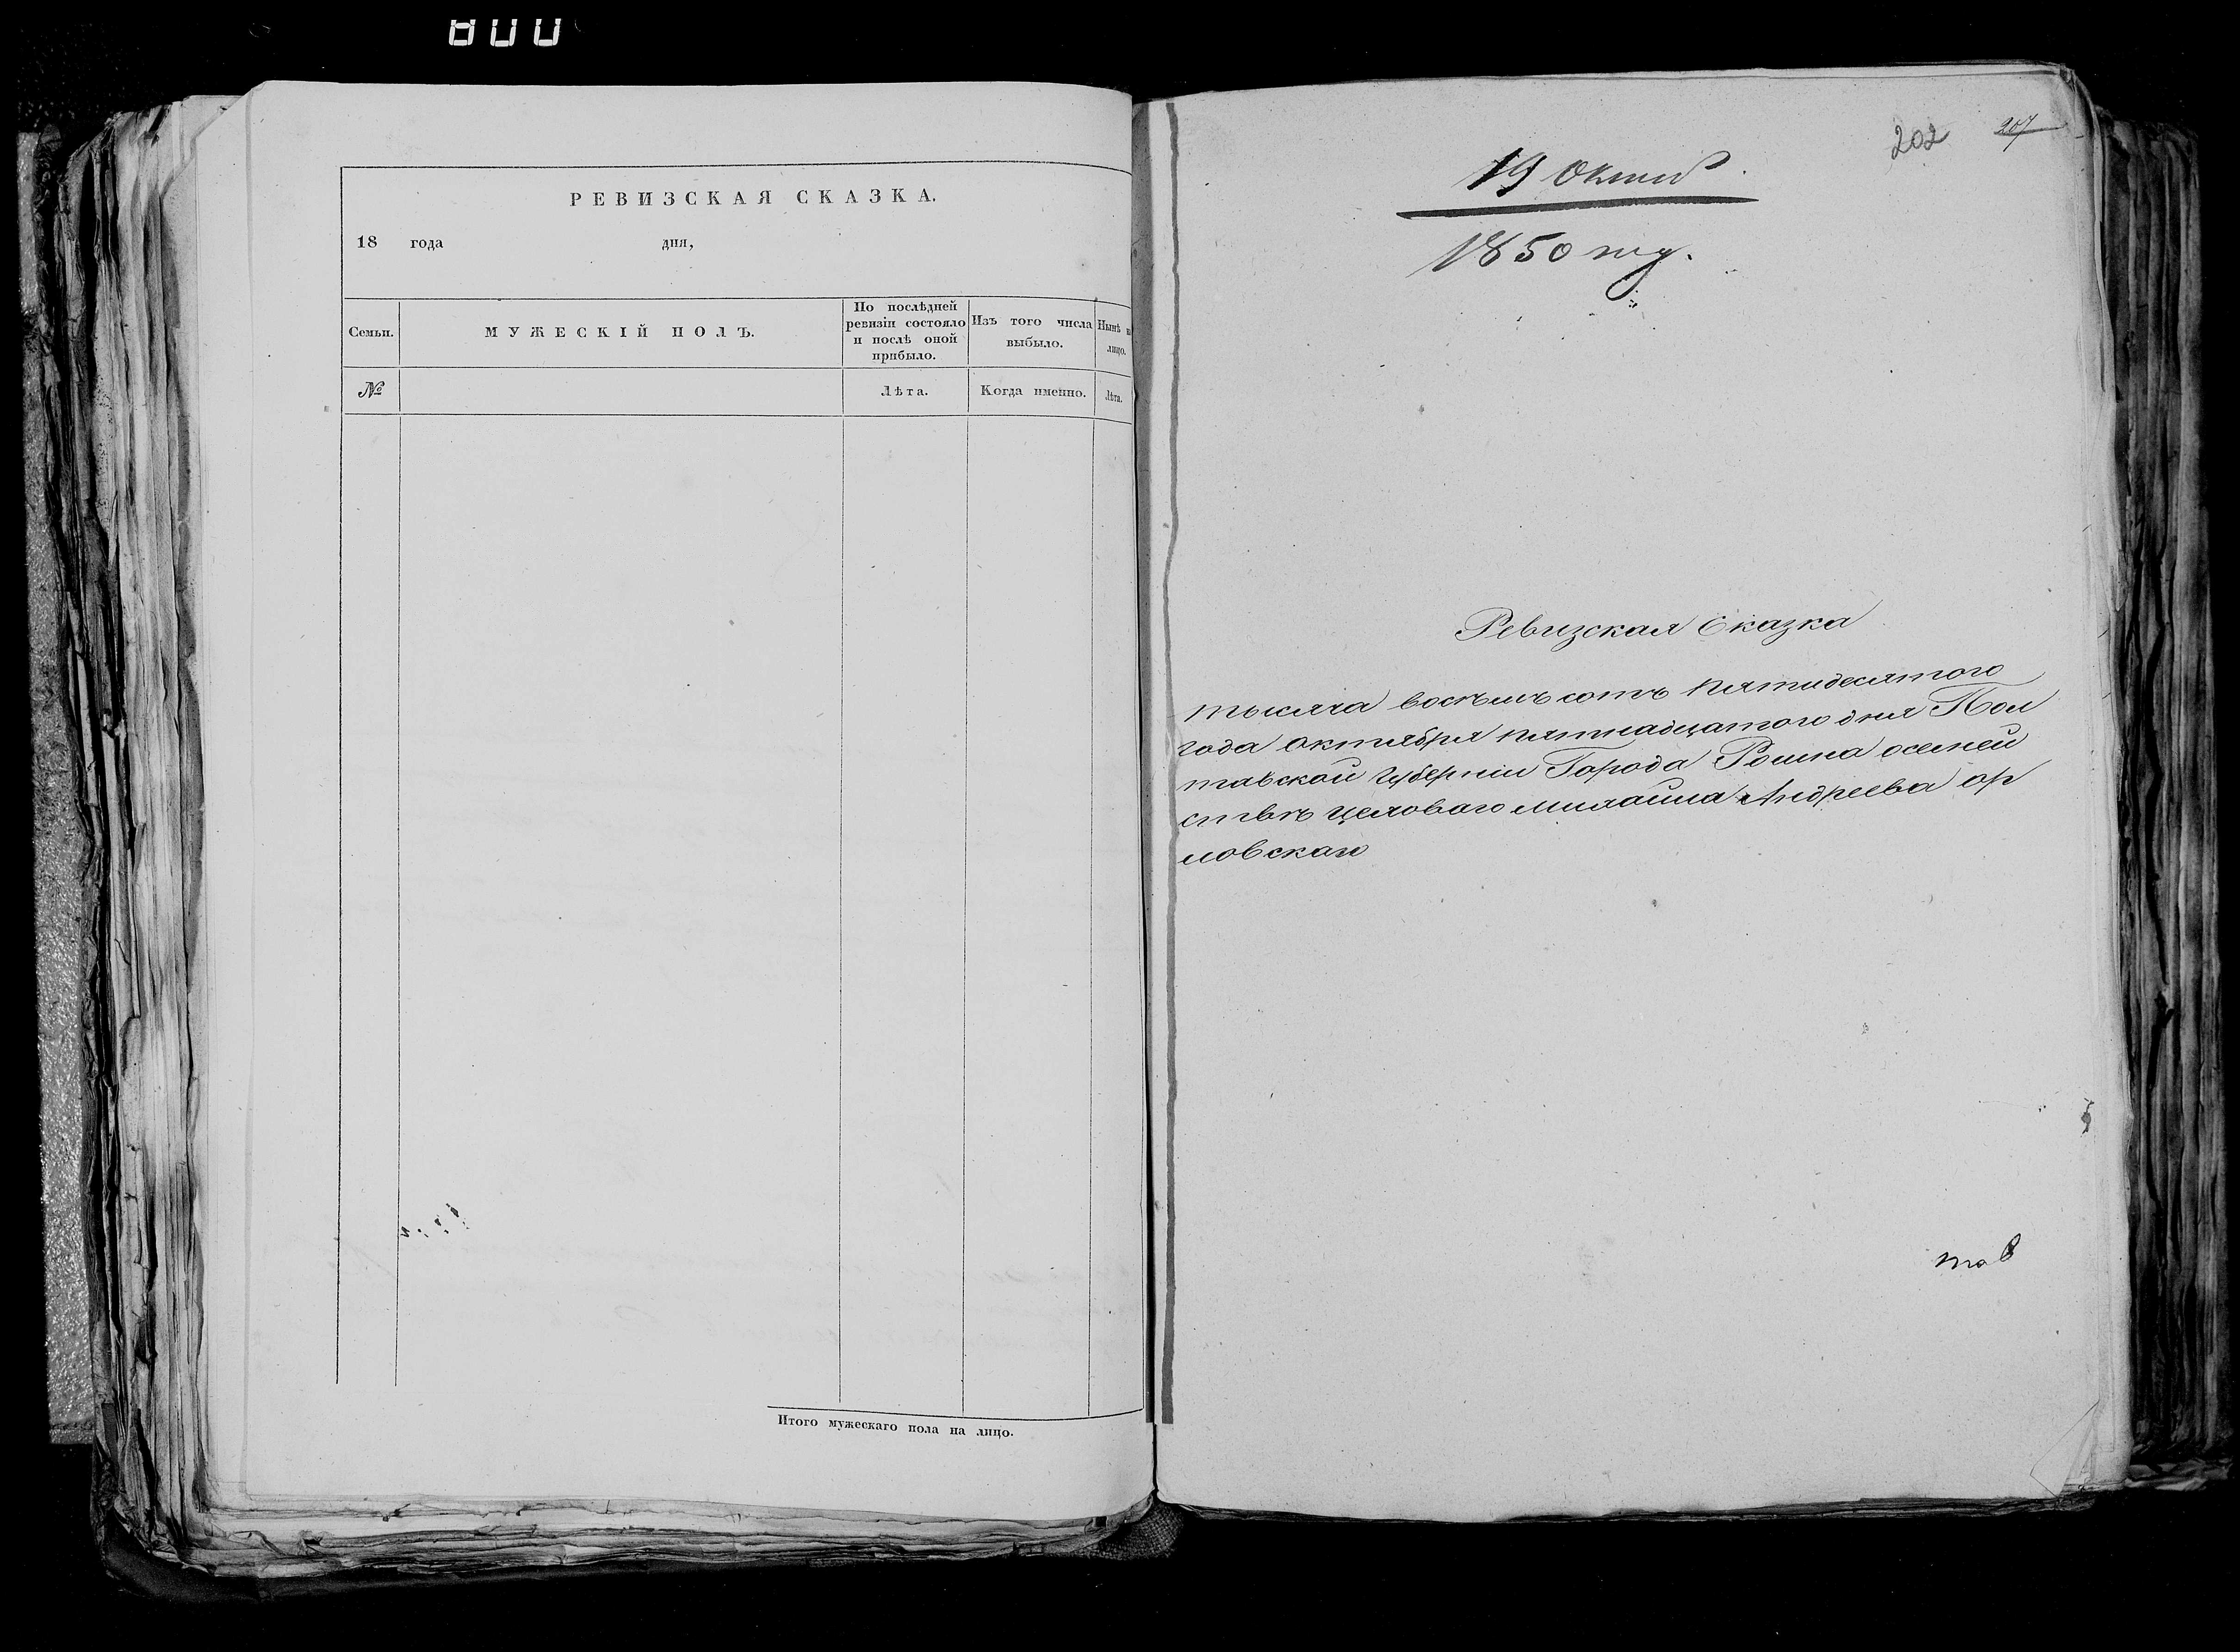 800
РЕВИЗСКАЯ СКАЗКА.
18 года дня,
Семьи.
МУЖЕСКІЙ ПОЛЪ.
По послѣдней
ревизіи состояло
и послѣ оной
прибыло.
Изъ того числа
выбыло.
Нынѣ н
лицо.
№
Лѣта.
Когда именно.
Лѣта.
Итого мужескаго пола на лицо.
202 207
19 Октяб
1850 год.
Ревизская Сказка
тысяча восѣмъ сотъ пятидесятого
года октября пятнадцатого дня Пол
тавской губерніи Города Ромна осемей
ствѣ цеховаго Андреева ор
ловскаго
тав